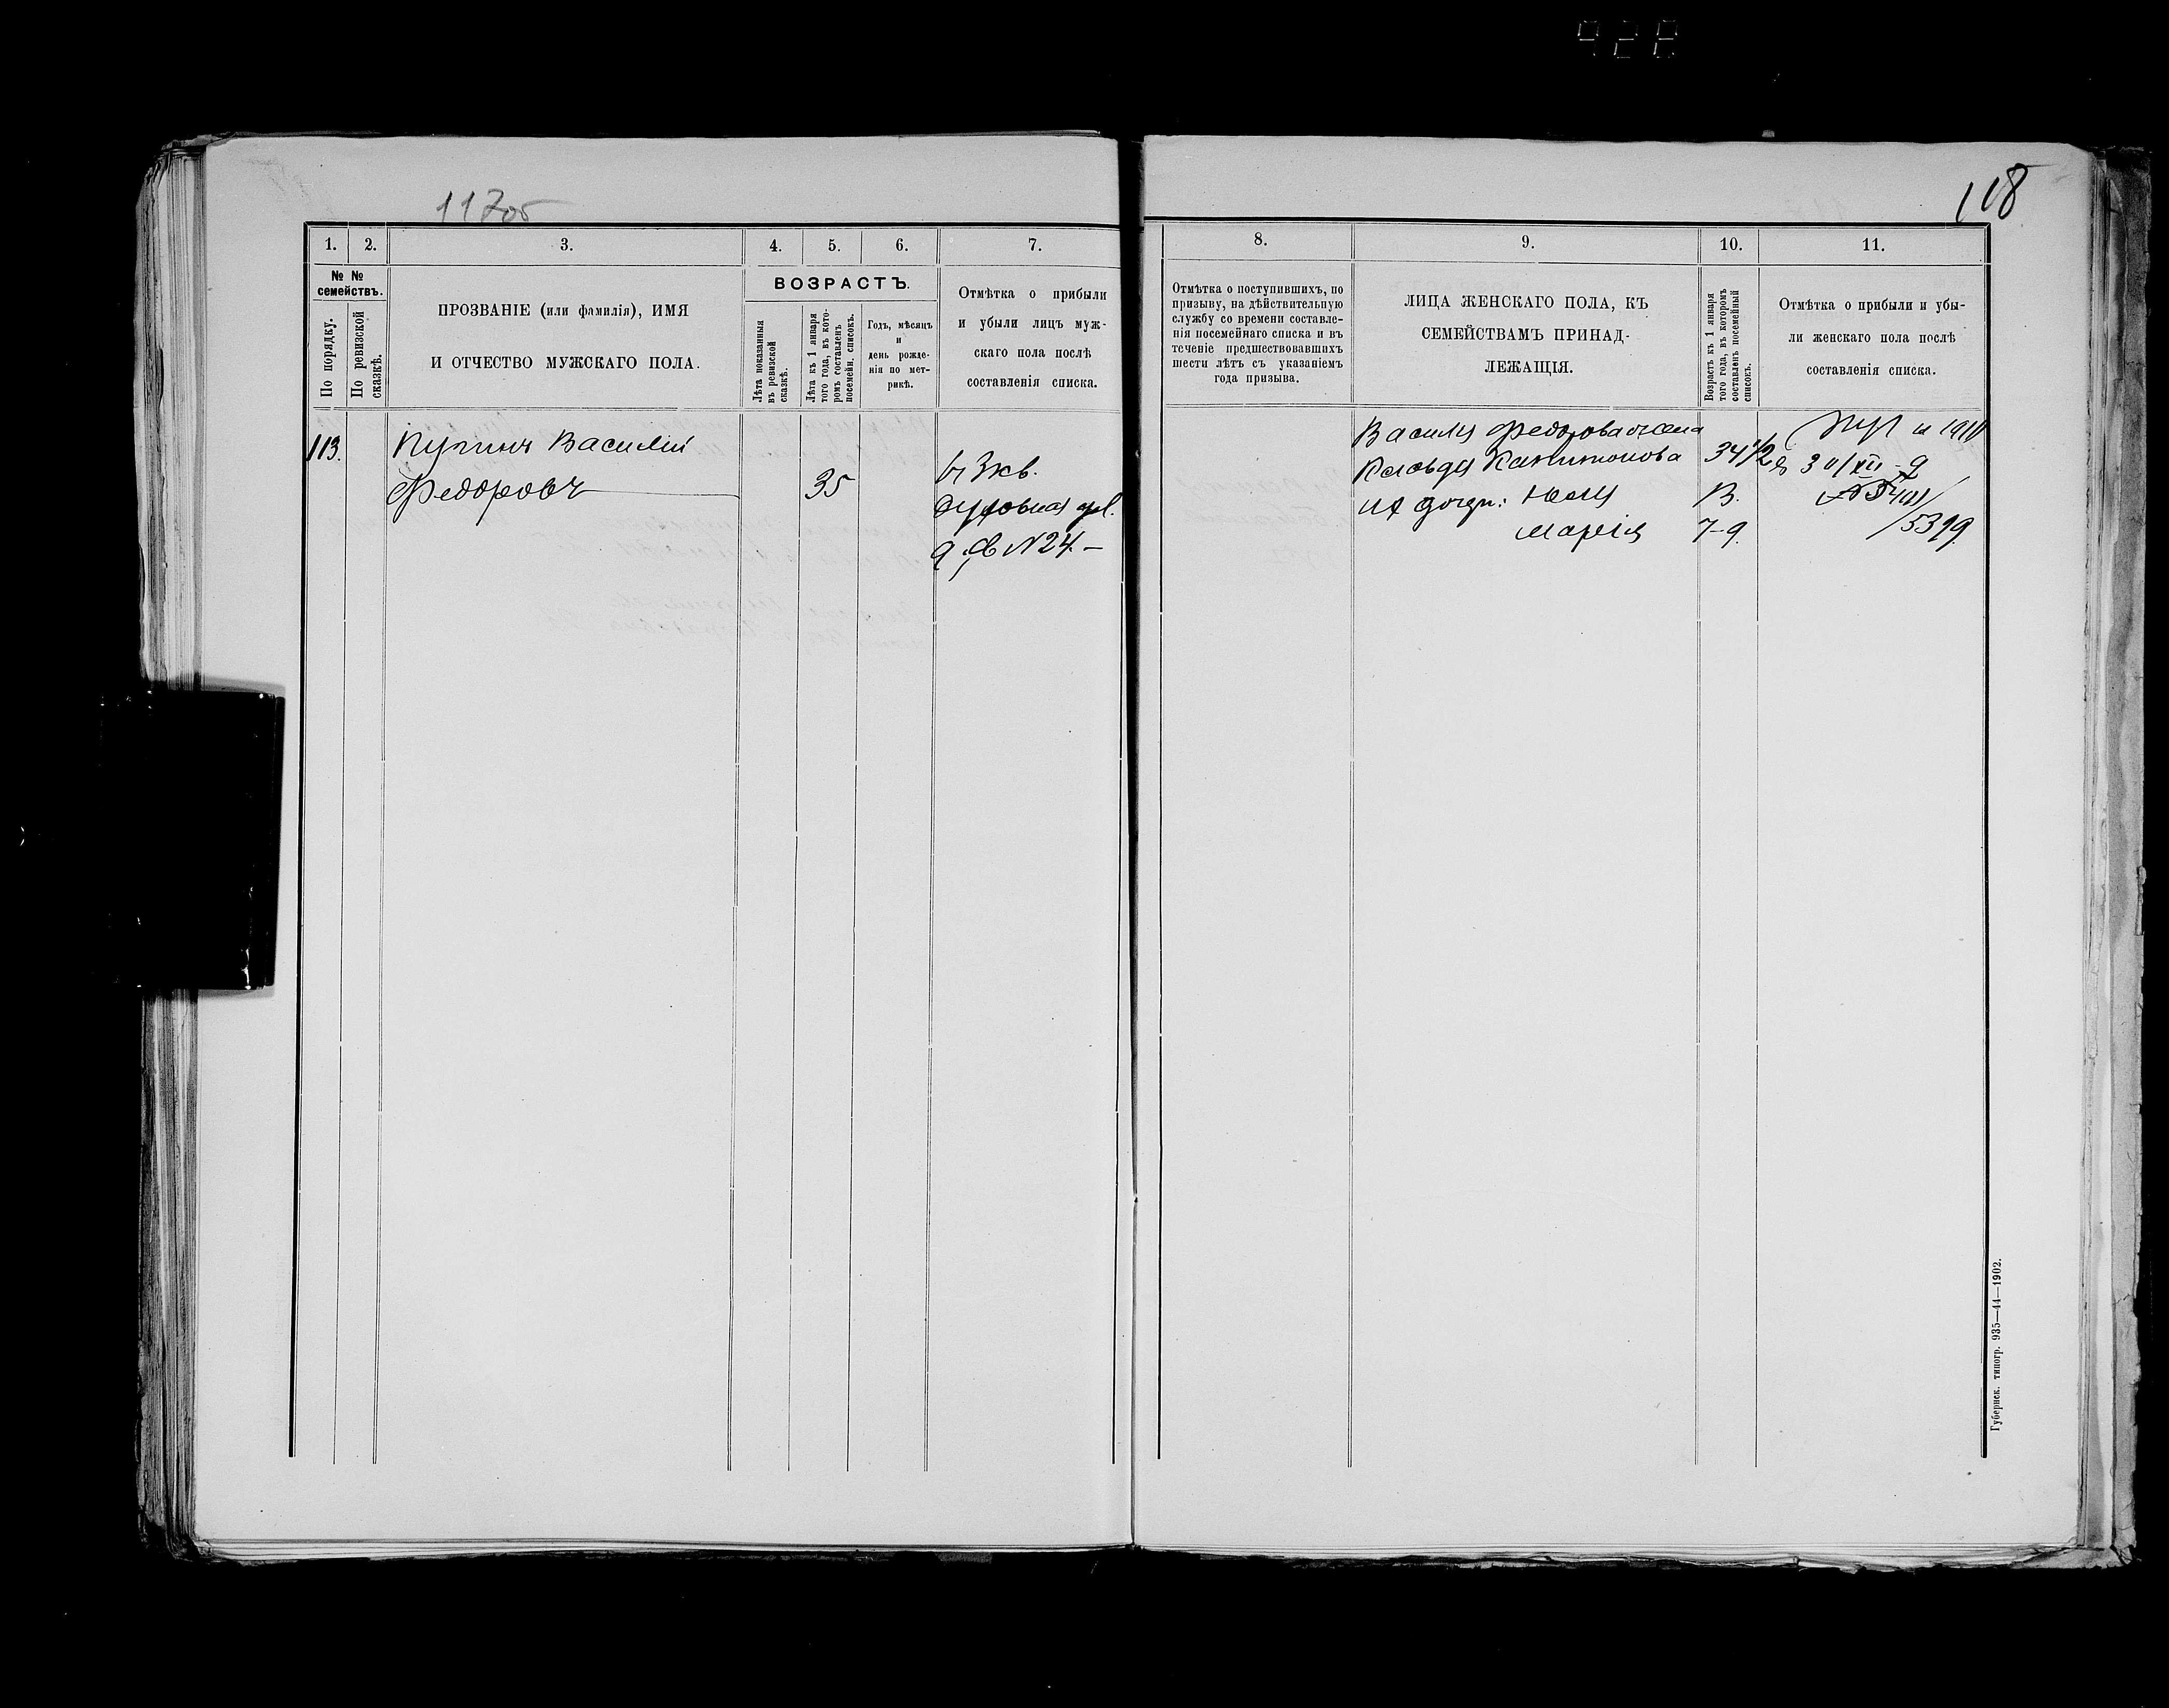 428
117об
118
1.
2.
3.
4.
5.
6.
7.
8.
9.
10.
11.
№ №
семействъ.
По порядку.
По ревизской
сказкѣ.
ПРОЗВАНІЕ (или фамилія), ИМЯ
И ОТЧЕСТВО МУЖСКАГО ПОЛА.
ВОЗРАСТЪ.
Лѣта показанныя
въ ревизской
сказкѣ.
Лѣта къ 1 января
того года, въ кото-
ромъ составленъ
посемейн. списокъ.
Годъ, мѣсяцъ
и
день рожде-
нія по мет-
рикѣ.
Отмѣтка о прибыли
и убыли лицъ муж-
скаго пола послѣ
составленія списка.
Отмѣтка о поступившихъ, по
призыву, на дѣйствительную
службу со времени составле-
нія посемейнаго списка и въ
теченіе предшествовавшихъ
шести лѣтъ съ указаніемъ
года призыва.
ЛИЦА ЖЕНСКАГО ПОЛА, КЪ
СЕМЕЙСТВАМЪ ПРИНАД-
ЛЕЖАЩІЯ.
Возрастъ къ 1 января
того года, въ которомъ
составленъ посемейный
списокъ.
Отмѣтка о прибыли и убы-
ли женскаго пола послѣ
составленія списка.
113.
Василій
Федоровъ
35
3 кв.
Духовная ул.
д. № 24.
Василія Федорова жена
34 1/2
их дочери:
Марія
7
5399
Губернск. типогр. 935—44—1902.